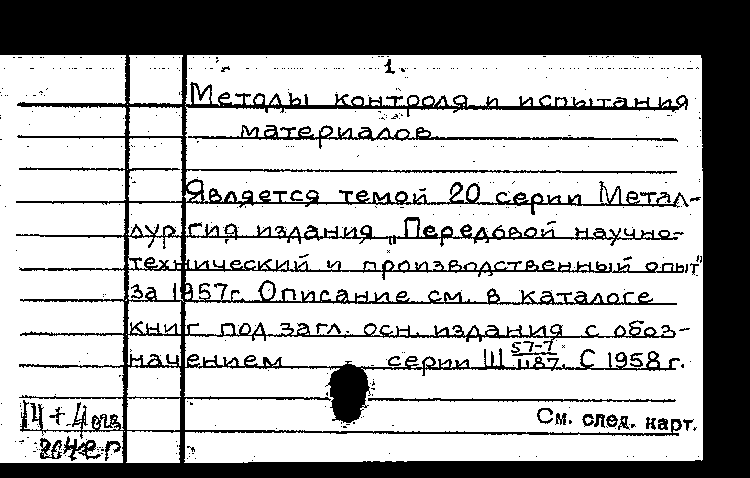 1.
Методы контроля и испытания
материалов
Является темой 20 серии Метал-
лургия издания „Передовой научно-
технический и производственный опыт"
за 1957г. Описание см. в каталоге
книг под загл. осн. издания с обоз-
начением серии Ш 57-7/1187. С 1958 г.
См. след. карт.